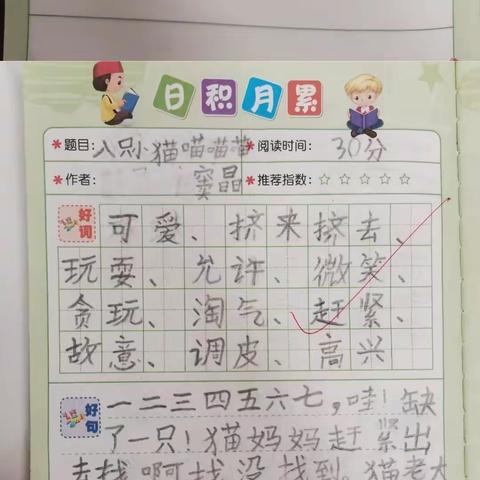 日积月累
题目：八只小猫喵喵喵 阅读时间：30分
作者：窦晶 推荐指数：☆☆☆☆☆
好词
可爱、挤来挤去、
玩耍、允许、微笑、
贪玩、淘气、赶紧、
故意、调皮、高兴
好句
一二三四五六七，哇！缺
了一只！猫妈妈赶紧出
去找啊找没找到。猫老大